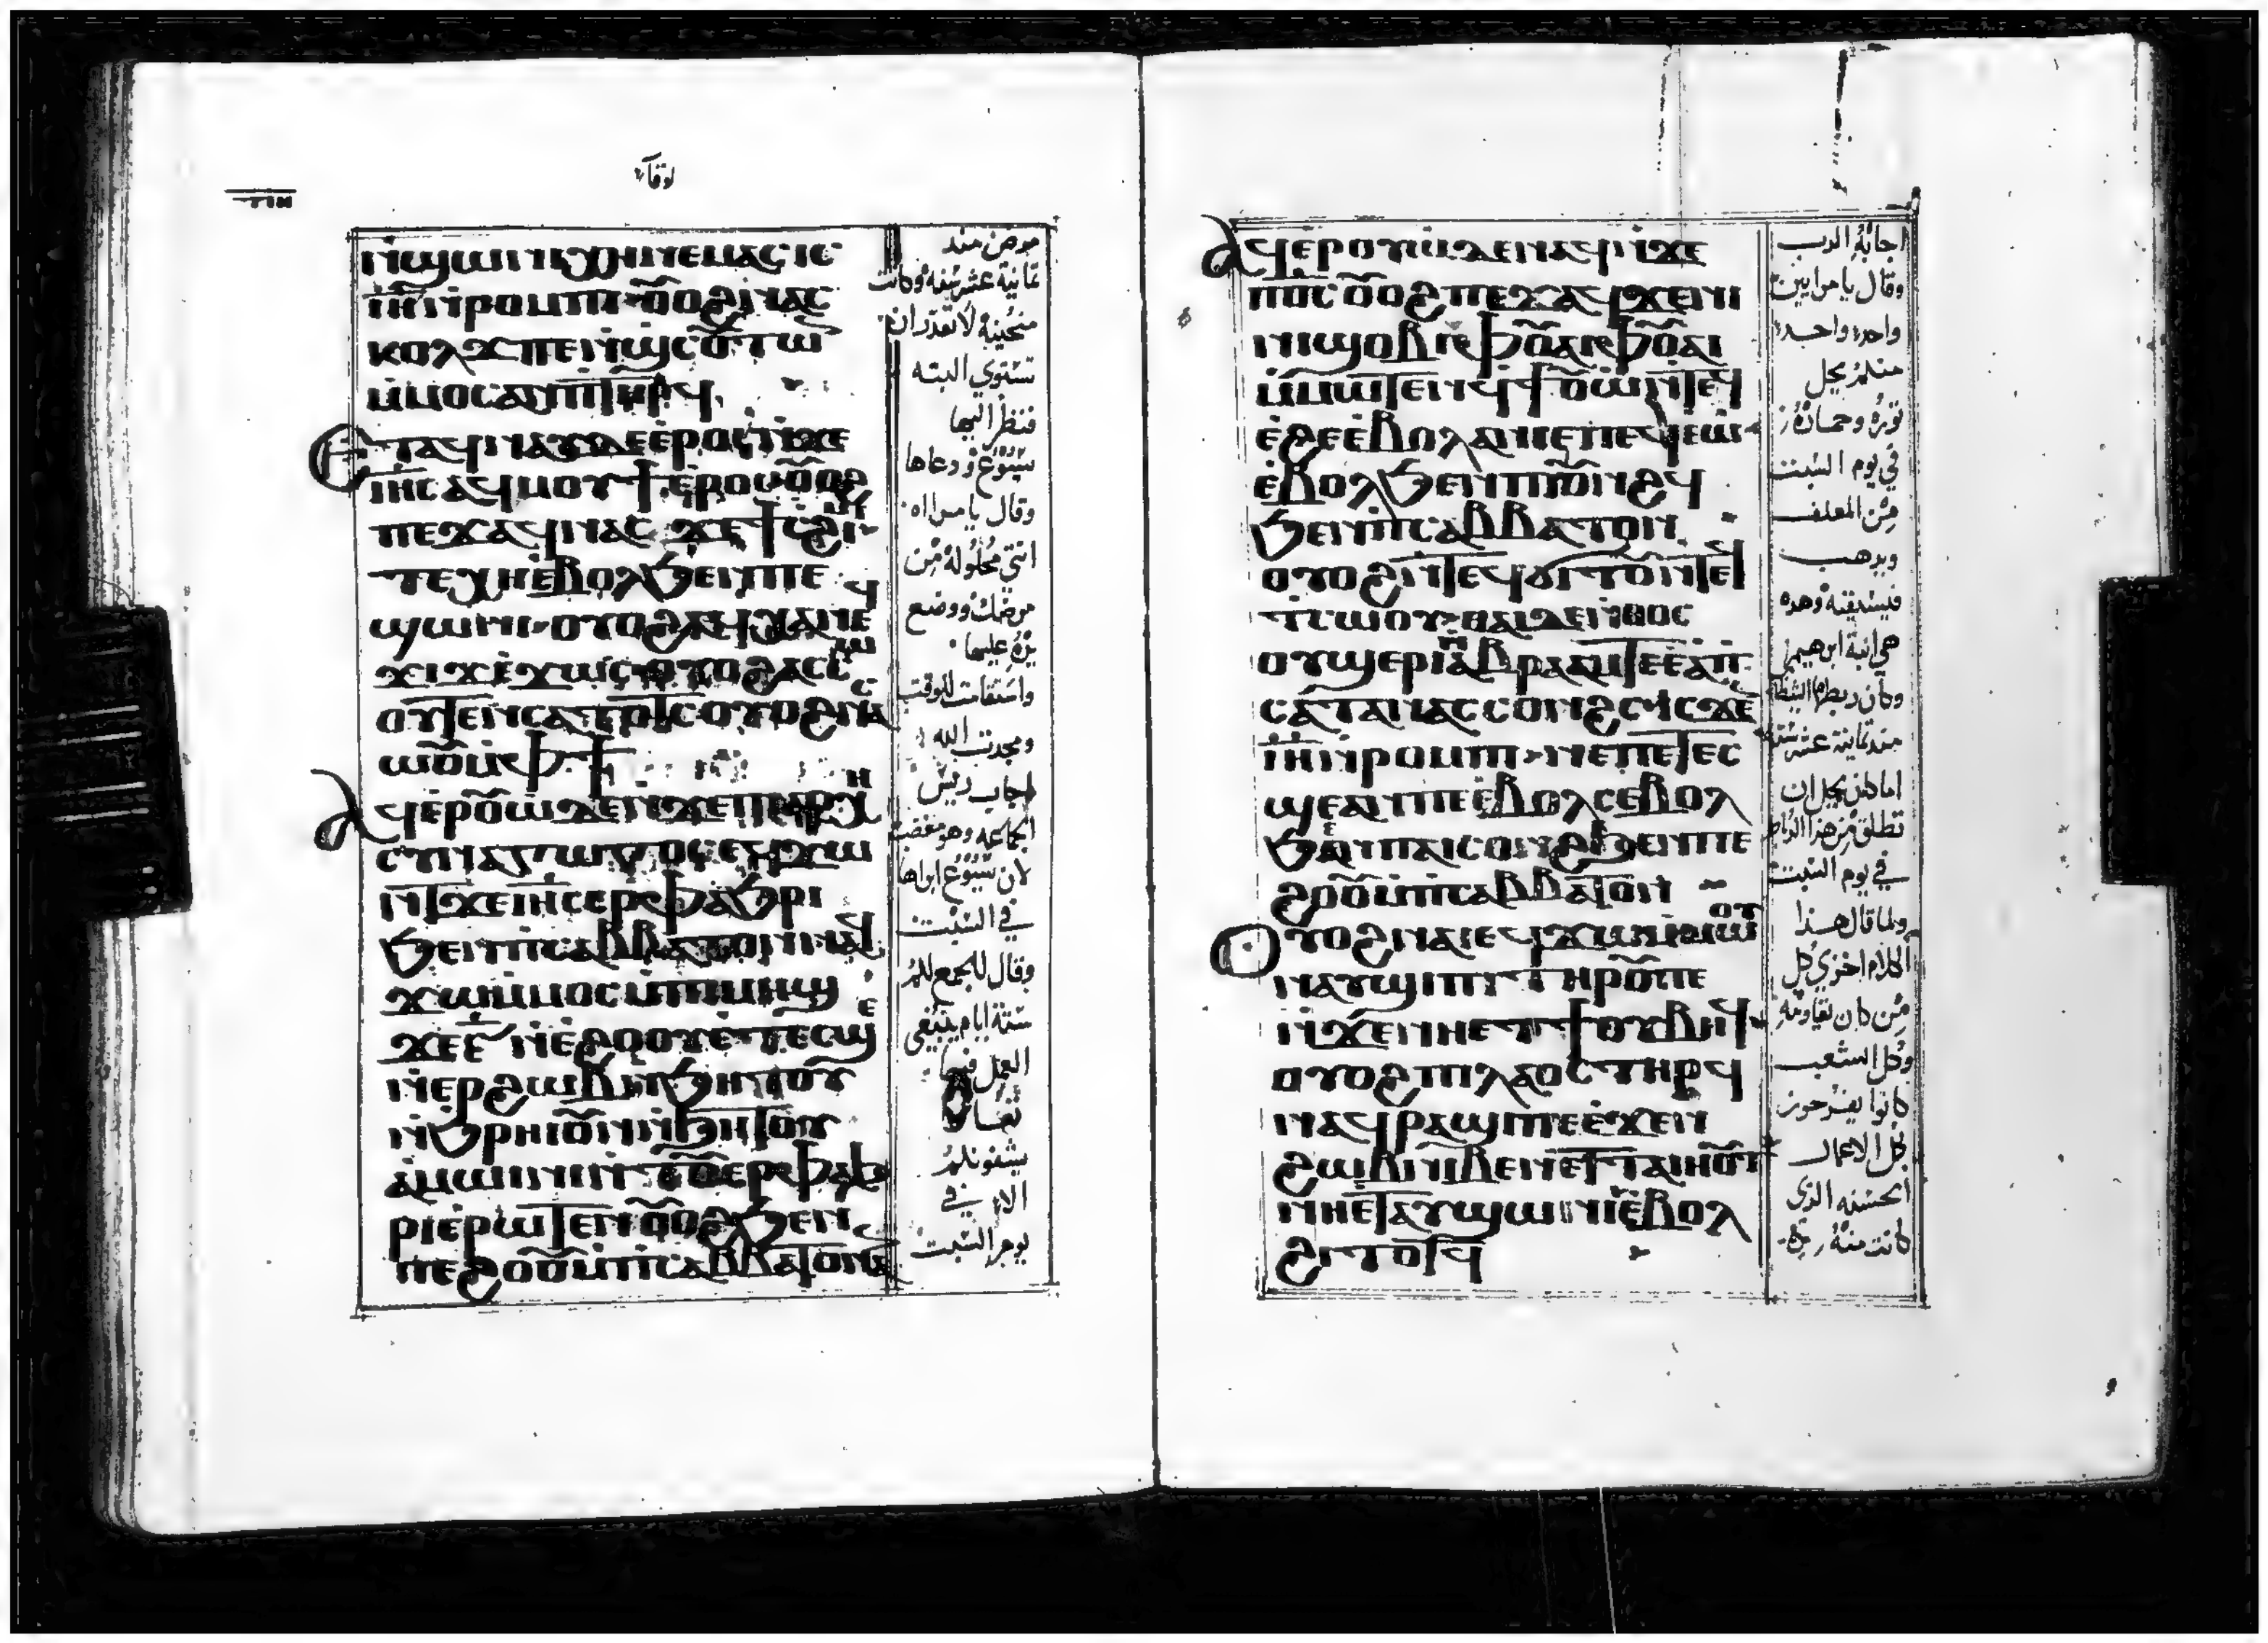 لوقا
ⲛ̀ϣⲱⲛⲓ ⲛⲭⲏ ⲛⲉⲙⲁⲥ ⲓⲥ
ⲓ̅ⲏ̅ ⲛ̀ⲣⲟⲙⲡⲓ ⲟ̅ⲟϩ ⲛⲁⲥ
ⲕⲟⲗϫ ⲡⲉ
ⲙ̀ⲙⲟⲥ ⲁⲛ ⲡⲧⲏⲣϥ
ⲉⲧⲁϥⲛⲁⲩ ⲇⲉ ⲉⲣⲟⲥ ⲛ̀ϫⲉ
ⲓⲏ̅ⲥ ⲁϥⲙⲟⲩϯ ⲉⲣⲟⲥ ⲟ̅ⲟϩ
ⲡⲉϫⲁϥ ⲛⲁⲥ ϫⲉ ϯⲥϩⲓ
ⲧⲉⲭⲏ ⲉ̀ⲃⲟⲗ ϧⲉⲛ ⲡⲉ
ϣⲱⲛⲓ ⲟⲩⲟϩ ⲁϥⲭⲁ ⲛⲉϥ
ϫⲓϫ ⲉ̀ϫⲱⲥ ⲟⲩⲟϩ ⲁⲥⲥⲱ
ⲟⲩⲧⲉⲛ ⲥⲁⲧⲟⲧⲥ ⲟⲩⲟϩ ⲛⲁⲥϯ
ⲱⲟ̅ⲙ̀ⲫϯ
ⲁϥⲉⲣⲟ̅ⲱ ⲇⲉ ⲛ̀ϫⲉ ⲡⲓⲁⲣⲭⲏ
ⲥⲩⲛⲁⲅⲱⲅⲟⲥ ⲉϥϫⲱ
ⲛ̀ϫⲉ ⲓⲏ̅ⲥ ⲉⲣⲫⲁϧⲣⲓ
ϧⲉⲛ ⲡⲥⲁⲃⲃⲁⲧⲟⲛ ⲛⲁϥ
ϫⲱ ⲙ̀ⲙⲟⲥ ⲙ̀ⲡⲓⲙⲏϣ
ϫⲉ ⲋ̅ ⲛ̀ⲉϩⲟⲟⲩ ⲉ̀ⲧⲉⲥϣⲉ
ⲛ̀ⲉⲣϩⲱⲃ ⲛ̀ϧⲏⲧⲟⲩ
ⲛ̀ϧⲣⲏⲓ ⲟ̅ⲛ ⲛ̀ϧⲏⲧⲟⲩ
ⲁ̀ⲙⲱⲓⲛⲓ ⲛ̀ⲧⲟ̅ⲉⲣⲫⲁϧ
ⲣⲓ ⲉ̀ⲣⲱⲧⲉⲛ ⲟ̅ⲟϩ ϧⲉⲛ
ⲡⲉϩⲟⲟ̅ ⲙ̀ⲡⲥⲁⲃⲃⲁⲧⲟⲛ ⲁⲛ
مرض مند
ثمانية عشر سنة وكانت
منحنية لا تقدر ان
تستوي البته
فنظر اليها
يسوع ودعاها
وقال يا مراه
انتي محلولة من
مرضك ووضع
يده عليها
واستقامت للوقت
ومجدت الله
اجاب ريس
الجماعه وهو مغضب
لان يسوع ابراها
في السبت
وقال للجمع لكم
ستة ايام ينبغي
العمل فيها
تعالوا
يشفونكم
الا في
يوم السبت
ⲁϥⲉⲣⲟⲩⲱ̀ ⲇⲉ ⲛⲁϥ ⲛ̀ϫⲉ
ⲡⲟ̅ⲥ ⲟ̅ⲟϩ ⲡⲉϫⲁϥ ϫⲉ ⲛⲓ
ⲛⲓϣⲟⲃⲓ ⲫⲟ̅ⲁⲓ ⲫⲟ̅ⲁⲓ
ⲙ̀ⲙⲱⲧⲉⲛ ϥϯⲟ̅ⲱ ⲛ̀ⲧⲉϥ
ⲉ̀ϩⲉ ⲉ̀ⲃⲟⲗ ⲁⲛ ⲓⲉ ⲡⲉϥⲉ̀ⲱ
ⲉ̀ⲃⲟⲗ ϧⲉⲛ ⲡⲓⲟ̅ⲟⲛϩϥ
ϧⲉⲛ ⲡⲥⲁⲃⲃⲁⲧⲟⲛ
ⲟⲩⲟϩ ⲛ̀ⲧⲉϥϭⲓⲧⲟ̅ ⲛ̀ⲧⲉϥ
ⲧⲥⲱⲟⲩ ⲑⲁⲓ ⲇⲉ ⲛ̀ⲑⲟⲥ
ⲟⲩϣⲉⲣⲓ ⲛ̀ⲁⲃⲣⲁⲁⲙ ⲧⲉ ⲉ̀ⲁⲡ
ⲥⲁⲧⲁⲛⲁⲥ ⲥⲟⲛϩⲥ ⲓⲥϫⲉ
ⲓ̅ⲏ̅ ⲛ̀ⲣⲟⲙⲡⲓ ⲛⲉ ⲡⲉⲧⲉⲥ
ϣⲉ ⲁⲛ ⲡⲉ ⲉ̀ⲃⲟⲗⲥ ⲉ̀ⲃⲟⲗ
ϧⲉⲛ ⲡⲁⲓⲥⲟⲛϩ ϧⲉⲛ ⲡⲉ
ϩⲟⲟ̅ ⲙ̀ⲡⲥⲁⲃⲃⲁⲧⲟⲛ
ⲟⲩⲟϩ ⲛⲁⲓ ⲉϥϫⲱ ⲙ̀ⲙⲱⲟⲩ
ⲛⲁⲩϣⲓⲡⲓ ⲧⲏⲣⲟ̅ ⲡⲉ
ⲛ̀ϫⲉ ⲛⲏ ⲉⲧϯ ⲟⲩⲃⲏϥ
ⲟⲩⲟϩ ⲡⲓⲗⲁⲟⲥ ⲧⲏⲣϥ
ⲛⲁϥⲣⲁϣⲓ ⲡⲉ ⲉ̀ϫⲉⲛ
ϩⲱⲃ ⲛⲓⲃⲉⲛ ⲉⲧⲧⲁⲓⲏⲟ̅ⲧ
ⲛⲏ ⲉⲧⲁⲩϣⲱⲡⲓ ⲉ̀ⲃⲟⲗ
ϩⲓⲧⲟⲧϥ
اجابه الرب
وقال يا مرايين
واحد واحد
منكم يحل
ثوره وحماره
في يوم السبت
من المعلف
ويدهب
فيسقيه وهده
هي ابنة ابرهيم
وكان ربطها الشيطان
مند ثمانية عشر سنة
اما كان يحل ان
تطلق من هدا الرباط
في يوم السبت
ولما قال هدا
الكلام اخزي كل
من كان يقاومه
وكل الشعب
كانوا يفرحون
بكل الاعمال
الحسنه الدي
كانت منه